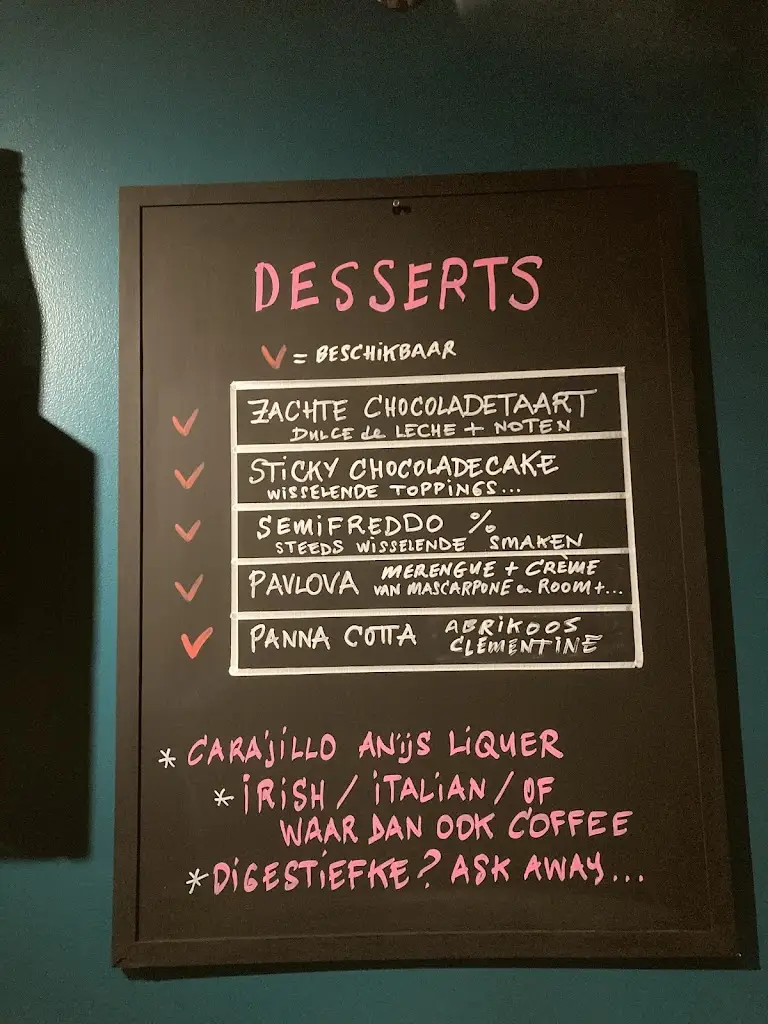 DESSERTS
V = BESCHIKBAAR
ZACHTE CHOCOLADETAART
DULCE de LECHE + NOTEN
STICKY CHOCOLADECAKE
WISSELENDE TOPPINGS...
SEMIFREDDO %
STEEDS WISSELENDE SMAKEN
PAVLOVA MERENGUE + CRÈME
VAN MASCARPONE en ROOM +...
PANNA COTTA ABRIKOOS
CLEMENTINE
* CARAJILLO ANIJS LIQUER
* IRISH / ITALIAN / OF
WAAR DAN OOK COFFEE
* DIGESTIEFKE? ASK AWAY...